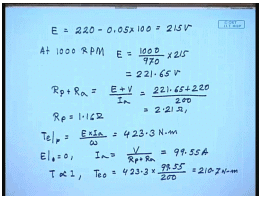 E = 220 - 0.05×100 = 215V
At 1000 RPM E = 1000/970 × 215
= 221.65 V
Rp+Ra = E+V/Ia = 221.65+220/200
= 2.21 Ω,
Rp = 1.16Ω
Te|p = E×Ia/ω = 423.3 N-m
E|o=0, Ia = V/Rp+Ra = 99.55A
T ∝ I, Teo = 423.3 × 99.55/200 = 210.7 N-m